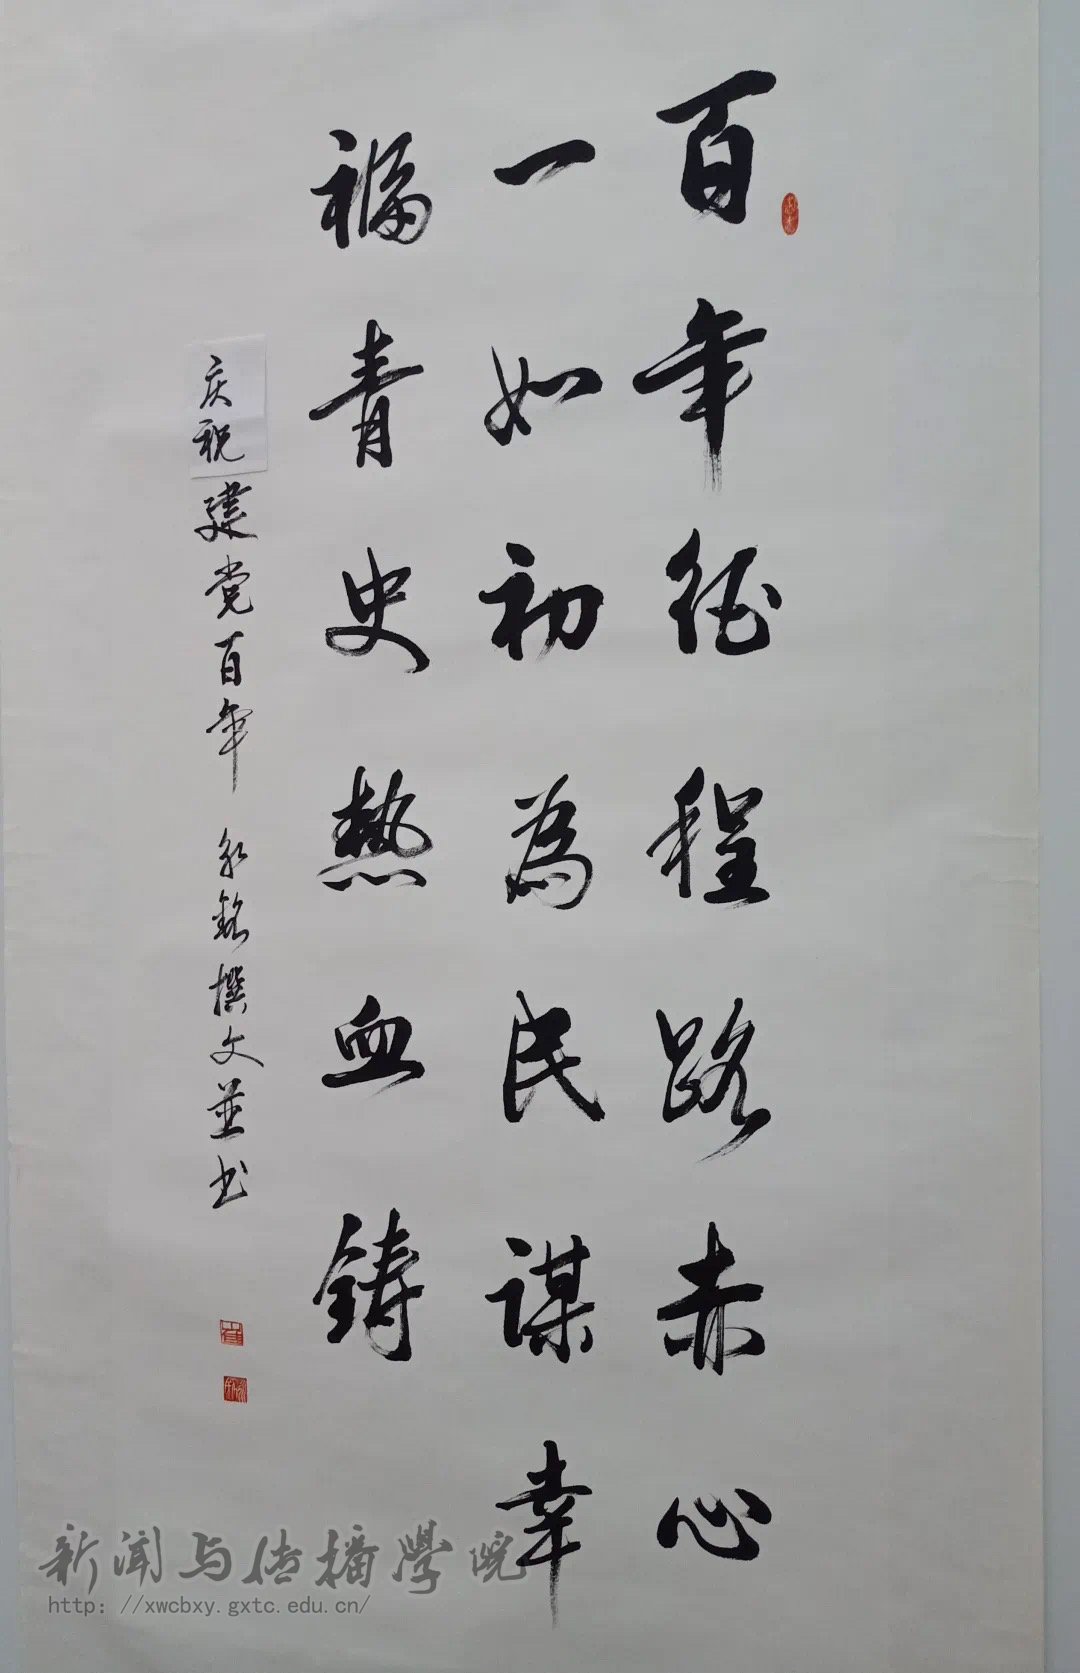 百年征程路赤心
一如初為民謀幸
福青史熱血鑄
庆祝建党百年 永銘撰文並书
新闻与传播学院
http: //xwcbxy.gxtc.edu.cn/